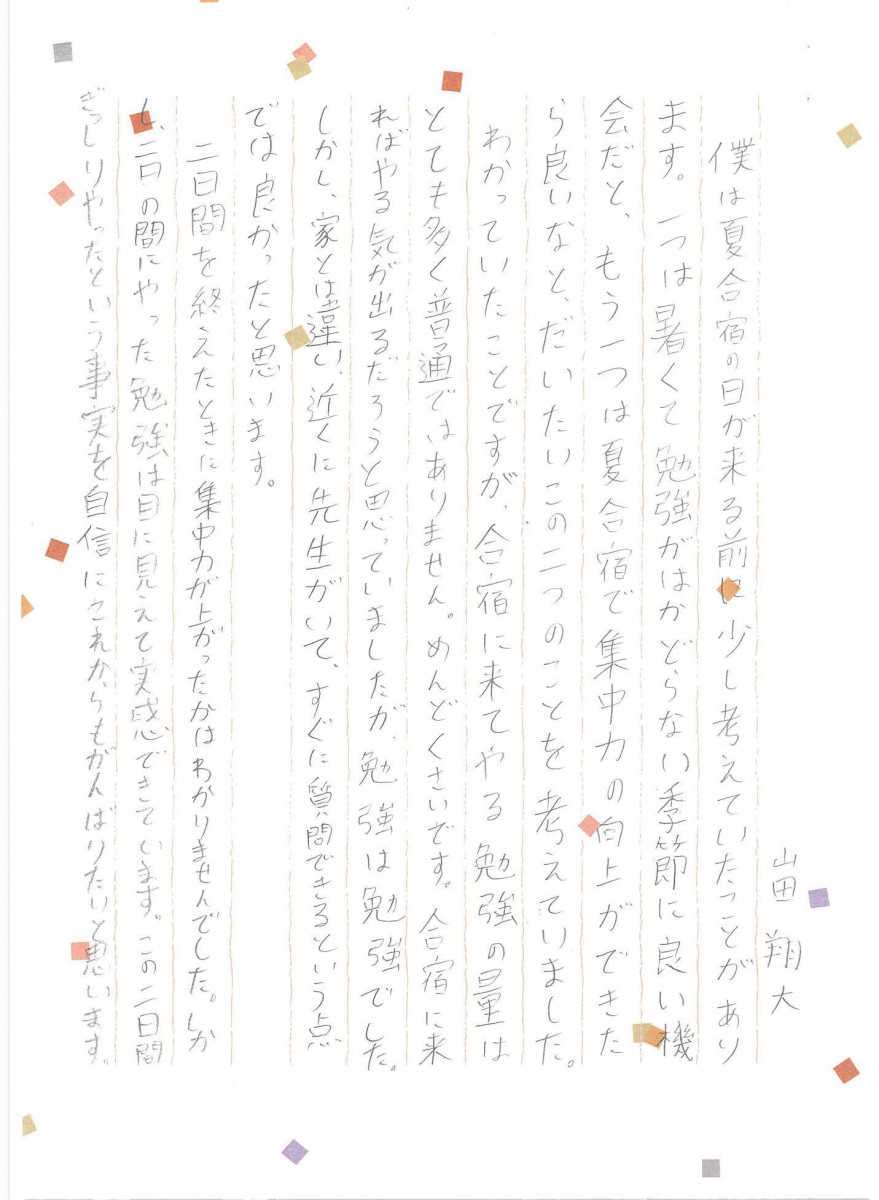 山田 翔大
僕は夏合宿の日が来る前に少し考えていたことがあり
ます。一つは暑くて勉強がはかどらない季節に良い機
会だと、もう一つは夏合宿で集中力の向上ができた
ら良いなと、だいたいこの二つのことを考えていました。
わかっていたことですが、合宿に来てやる勉強の量は
とても多く普通ではありません。めんどくさいです。合宿に来
ればやる気が出るだろうと思っていましたが、勉強は勉強でした。
しかし、家とは違い、近くに先生がいて、すぐに質問できるという点
では良かったと思います。
二日間を終えたときに集中力が上がったかはわかりませんでした。しか
し、二日の間にやった勉強は目に見えて実感できています。この二日間
ぎっしりやったという事実を自信にこれからもがんばりたいと思います。